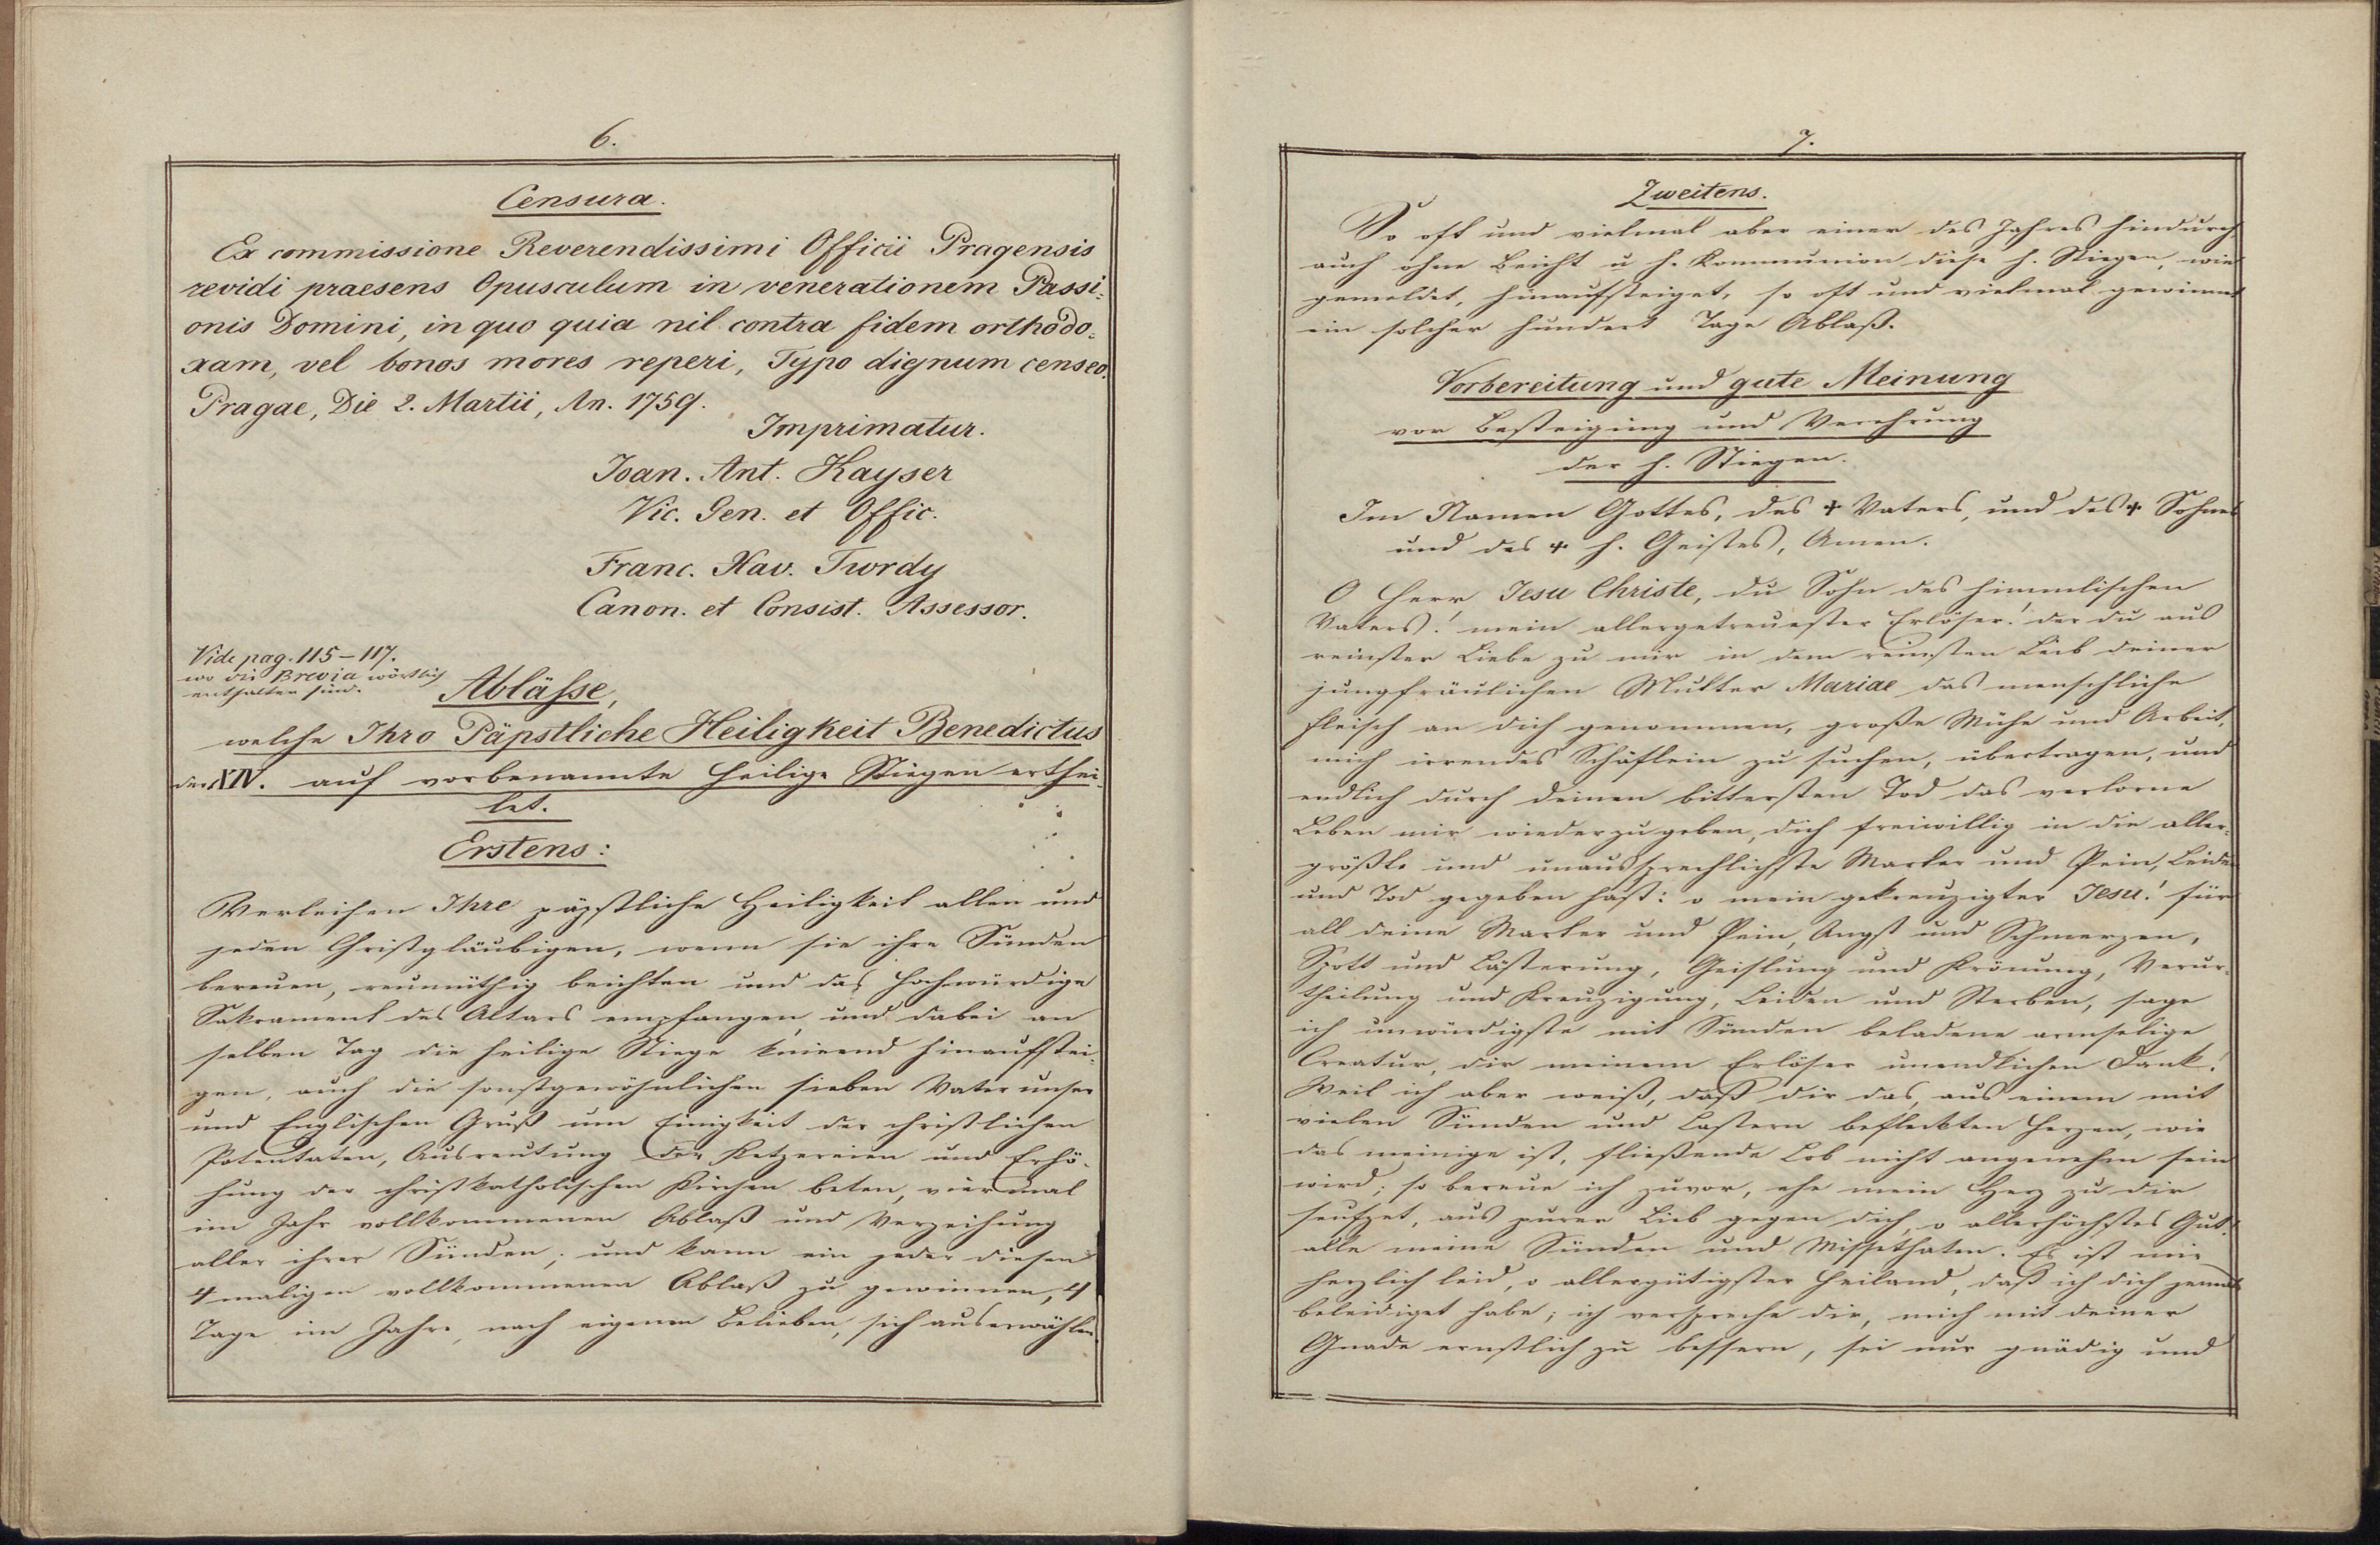 6.
Censura.
Ex commissione Reverendissimi Officii Pragensis
revidi praesens Opusculum in venerationem Passi=
onis Domini, in quo quia nil contra fidem orthodo=
xam, vel bonos mores reperi, Typo dignum censeo.
Pragae, Die 2. Martii, An. 1759.
Imprimatur.
Joan. Ant. Kayser
Vic. Gen. et Offic.
Franc. Xav. Twrdy
Canon. et Consist. Assessor.
Vide pag. 115–117.
wo die Brevia wörtlich
enthalten sind.
Abläße,
welche Ihro Päpstliche Heiligkeit Benedictus
der XIV. auf vorbenannte heilige Stiegen erthei=
let.
Erstens:
Verleihen Ihre päpstliche Heiligkeit allen und
jeden Christgläubigen, wenn sie ihre Sünden
bereuen, reumüthig beichten und das hochwürdige
Sakrament des Altars empfangen, und dabei an
selben Tag die heilige Stiege knieend hinaufstei=
gen, auch die sonstgewöhnlichen sieben Vater unser
und Englischen Gruß um Einigkeit der christlichen
Potentaten, Ausreutung der Ketzereien und Erhö=
hung der christkatholischen Kirchen beten, viermal
im Jahr vollkommenen Ablaß und Verzeihung
aller ihrer Sünden; und kann ein jeder diesen
4 maligen vollkommenen Ablaß zu gewinnen, 4
Tage im Jahre, nach eigenem Belieben, sich auserwählen.
7.
Zweitens.
So oft und vielmal aber einer des Jahres hindurch
auch ohne Beicht u h. Kommunion diese h. Stiegen, wie
gemeldet, hinaufsteiget, so oft und vielmal gewinnet
ein solcher hundert Tage Ablaß.
Vorbereitung und gute Meinung
vor Besteigung und Verehrung
der h. Stiegen.
Im Namen Gottes, des + Vaters, und des + Sohnes
und des + h. Geistes, Amen.
O Herr Jesu Christe, du Sohn des himmlischen
Vaters! mein allergetreuester Erlöser! der du aus
reinster Liebe zu mir in dem reinsten Leib deiner
jungfräulichen Mutter Mariae das menschliche
Fleisch an dich genommen, große Mühe und Arbeit,
mich irrendes Schäflein zu suchen, übertragen, und
endlich durch deinen bittersten Tod das verlorne
Leben mir wiederzugeben, dich freiwillig in die aller=
größte und unaussprechlichste Marter und Pein, Leiden
und Tod gegeben hast: o mein gekreuzigter Jesu! für
all deine Marter und Pein, Angst und Schmerzen,
Spott und Lästerung, Geislung und Krönung, Verur=
theilung und Kreuzigung, Leiden und Sterben, sage
ich unwürdigste mit Sünden beladene armselige
Creatur, dir meinem Erlöser unendlichen Dank!
Weil ich aber weiß, daß dir das, aus einem mit
vielen Sünden und Lastern befleckten Herzen, wie
das meinige ist, fließende Lob nicht angenehm sein
wird; so bereue ich zuvor, ehe mein Herz zu dir
seufzet, aus purer Lieb gegen dich, o allerhöchstes Gut!
alle meine Sünden und Missethaten. Es ist mir
herzlich leid, o allergütigster Heiland, daß ich dich jemal
beleidiget habe; ich verspreche dir, mich mit deiner
Gnade ernstlich zu bessern, sei nur gnädig und